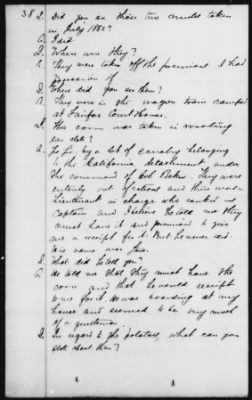 38 Q. Did you see those two mules taken
in July 1862?
A. I did.
Q. Where were they?
A. They were taken off the premises I had
possession of.
Q. Where did you see them?
A. They were in the wagon train camped
at Fairfax Court House.
Q. This corn was taken in
state?
A. by a lot of cavalry belonging
to the California detachment under
the command of Col Baker. They were
entirely out of rations and there was a
Lieutenant in charge who ranked as
Captain and I believe he told me they
must have it and promised to give
me a receipt for it. But however
his name was
Q. What did he tell you?
A. He told me that they must have the
corn and that he would receipt
to me for it. He was boarding at my
house and seemed to be very much
of a gentleman.
Q. In regard to the potatoes, what can you
state about them?